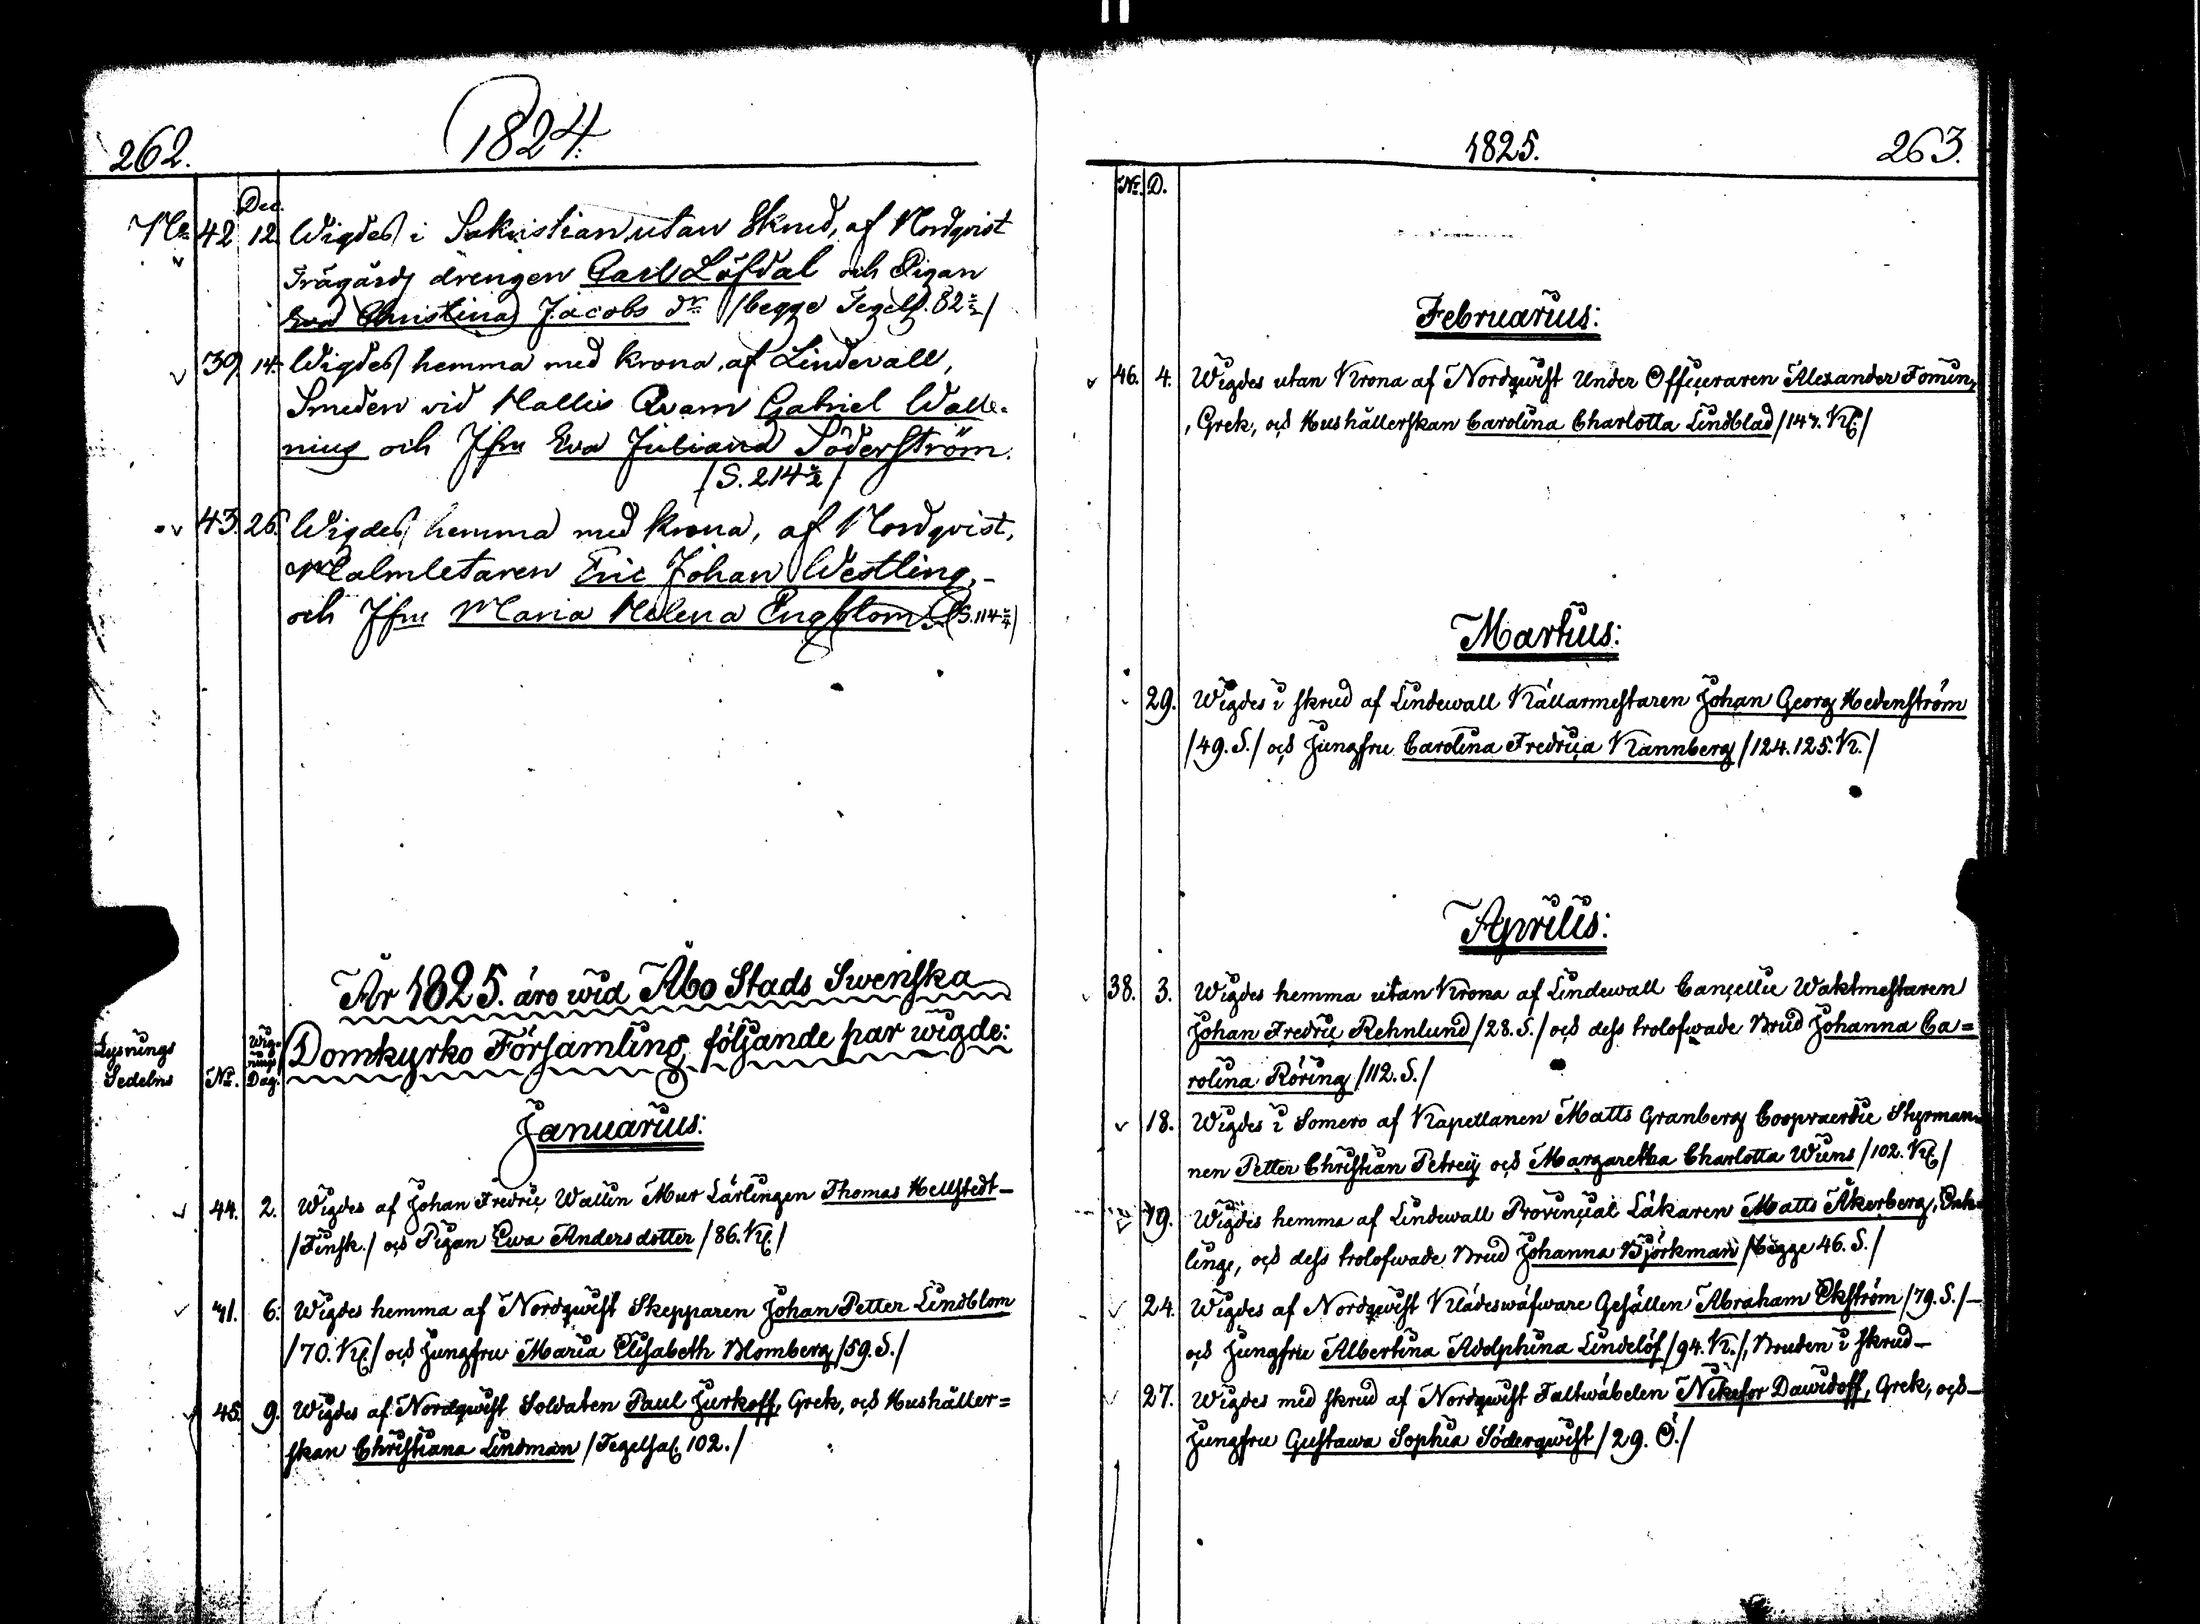 262.
1824.
Dec.
No 42 12. Wigdes i Sakristian utan Skrud, af Nordqvist
Trägårds drengen Carl Löfdal och Pigan
Eva Christina Jacobs dr /begge Tegels. 82 /
39 14. Wigdes hemma med krona, af Lindevall,
Smeden vid Hallis Qvarn Gabriel Walle-
nius och Jfru Eva Juliana Söderström.
/S. 214 /
43. 26. Wigdes hemma med krona, af Nordqvist,
Malmletaren Eric Johan Westling,
och Jfru Maria Helena Engblom. /S. 114 /
År 1825. äro wid Åbo Stads Swenska
Domkyrko Församling, följande par wigde:
Lysnings Sedelns
No.
Wig-
nings
Dag.
Januarius:
44. 2. Wigdes af Johan Fredric Wallin Mur Lärlingen Thomas Hellstedt
/Finsk./ och Pigan Ewa Andersdotter /86. Kl/
41. 6. Wigdes hemma af Nordqwist Skepparen Johan Petter Lindblom
/70. Kl/ och Jungfru Maria Elisabeth Blomberg /59. S./
45. 9. Wigdes af Nordqwist Soldaten Paul Jurkoff, Grek, och Hushåller=
skan Christiana Lindman /Tegelsal. 102./
1825.
263.
No. D.
Februarius:
46. 4. Wigdes utan Krona af Nordqwist Under Officeraren Alexander Fomin,
, Grek, och Hushållerskan Carolina Charlotta Lindblad /147. Kl/
Martius:
29. Wigdes i skrud af Lindewall Källarmestaren Johan Georg Hedenström
/49. S./ och Jungfru Carolina Fredrica Rannberg /124. 125. K./
Aprilis:
38. 3. Wigdes hemma utan Krona af Lindewall Cancellie Waktmestaren
Johan Fredric Rehnlund /28. S./ och dess trolofwade Brud Johanna Ca=
rolina Röring /112. S./
18. Wigdes i Somero af Kapellanen Matts Granberg Coopvaerdie Styrman-
nen Petter Christian Petreij och Margaretha Charlotta Wiens /102. Kl/
19. Wigdes hemma af Lindewall Provincial Läkaren Matts Åkerberg, Enk-
ling, och dess trolofwade Brud Johanna Björkman /begge 46. S./
24. Wigdes af Nordqwist Klädeswäfware Gesällen Abraham Ekström /79. S./
och Jungfru Albertina Adolphina Lindelöf /94. K./, Bruden i skrud
27. Wigdes med skrud af Nordqwist Faltwäbelen Nikefor Dawidoff, Grek, och
Jungfru Gustawa Sophia Söderqwist /29. S./